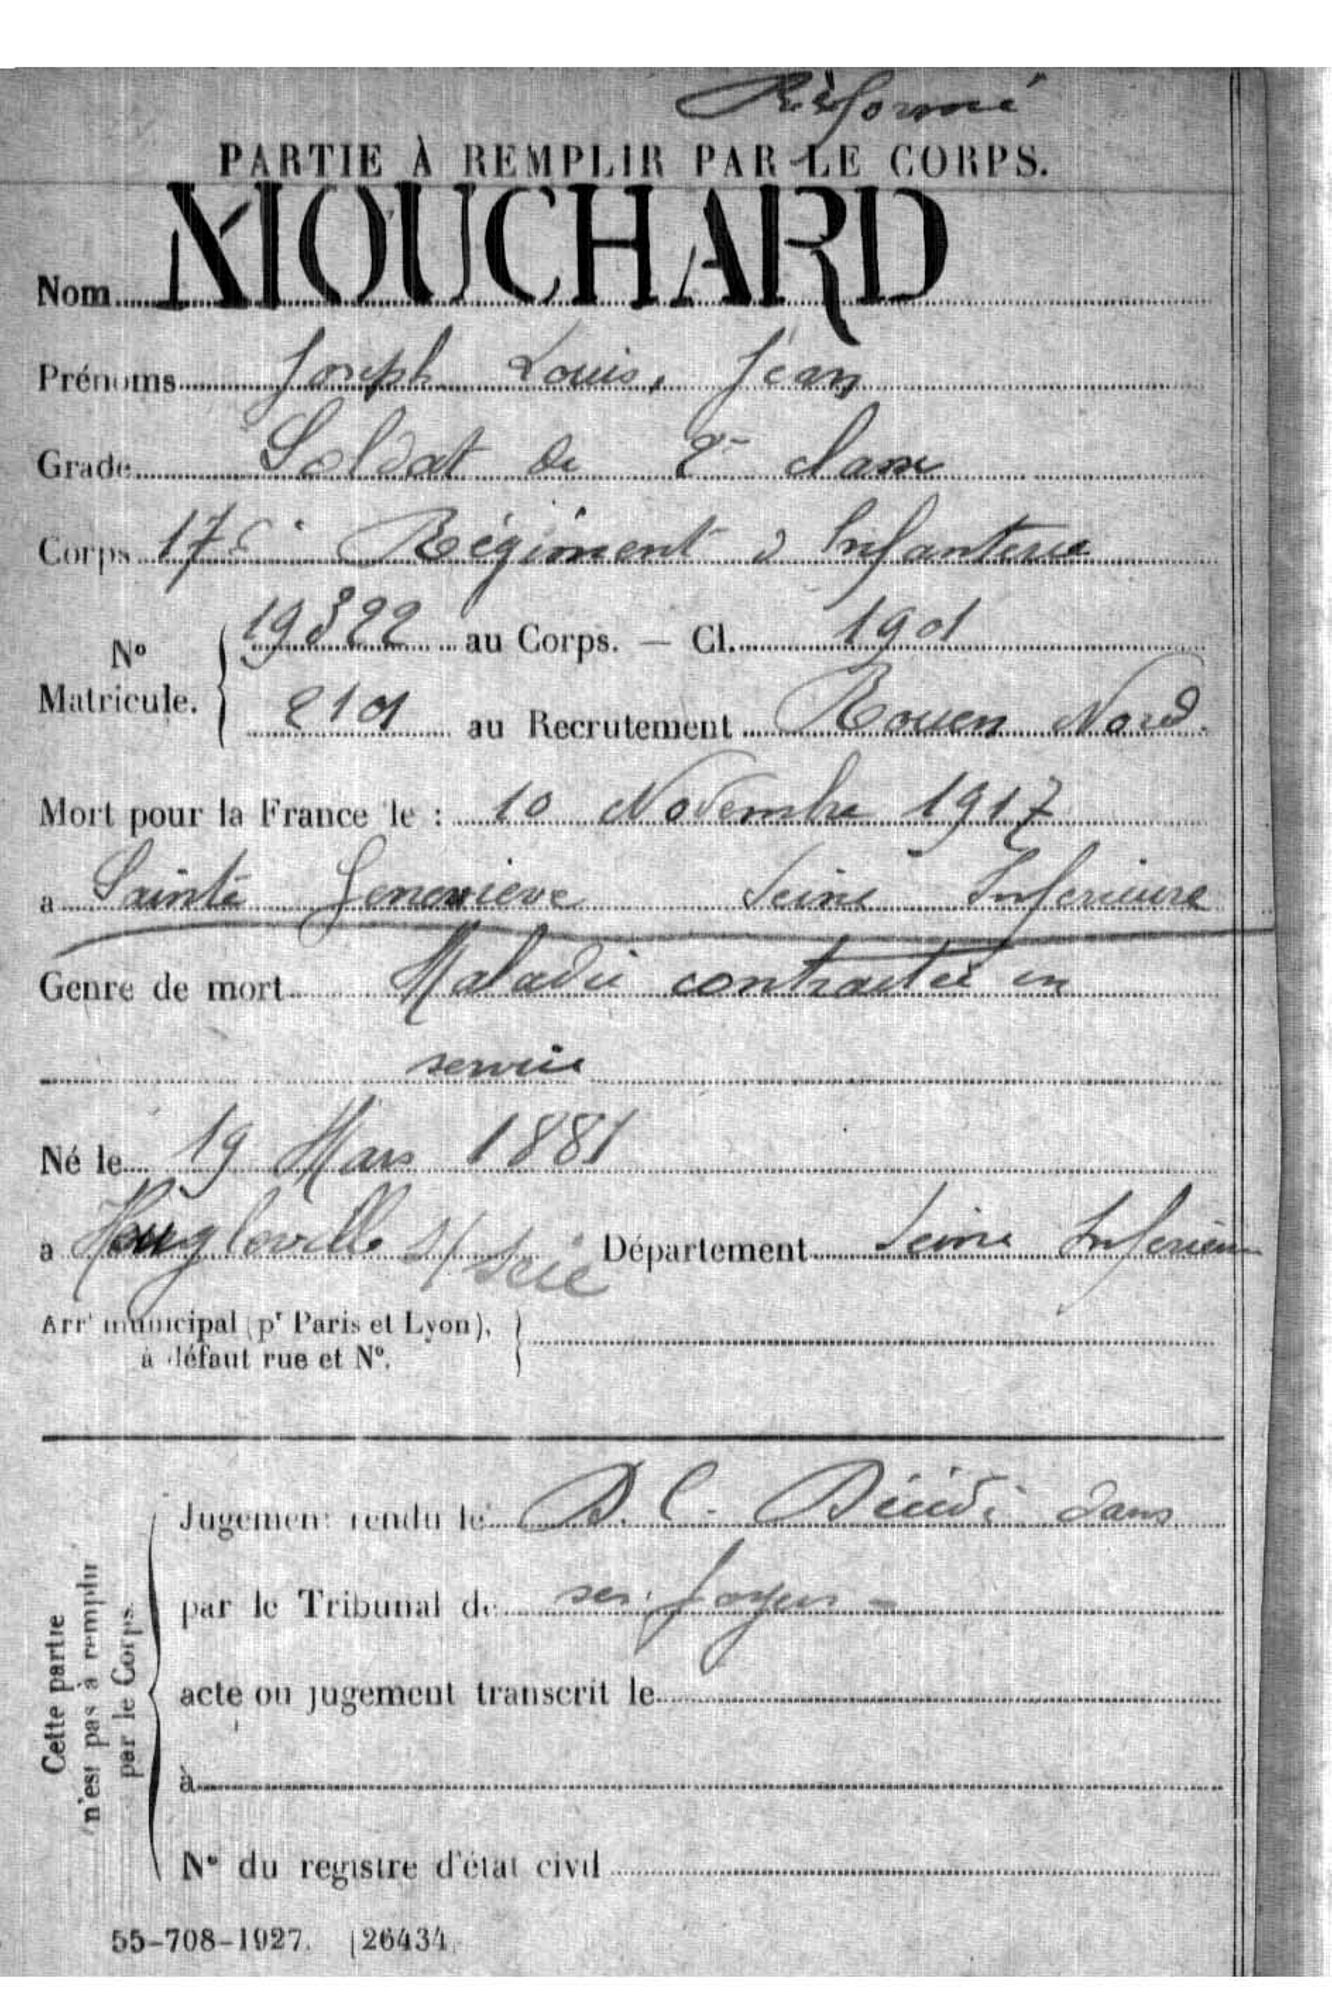 Réformé
PARTIE À REMPLIR PAR LE CORPS.
Nom MOUCHARD
Prénoms Joseph Louis, Jean
Grade Soldat de 2e classe
Corps 17e Régiment d'Infanterie
No Matricule. 19322 au Corps. — Cl. 1901
2101 au Recrutement Rouen Nord.
Mort pour la France le : 10 Novembre 1917
a Sainte Genevieve Seine Inferieure
Genre de mort Maladie contractée en
service
Né le 19 Mars 1881
a Heugleville s/ scie Département Seine Inferieure
Arrt municipal (pr Paris et Lyon),
à défaut rue et No.
Cette partie
n'est pas à remplir
par le Corps.
Jugement rendu le D. C. Décédé dans
par le Tribunal de ses foyers -
acte ou jugement transcrit le
à
No du registre d'état civil
55-708-1927. [26434.